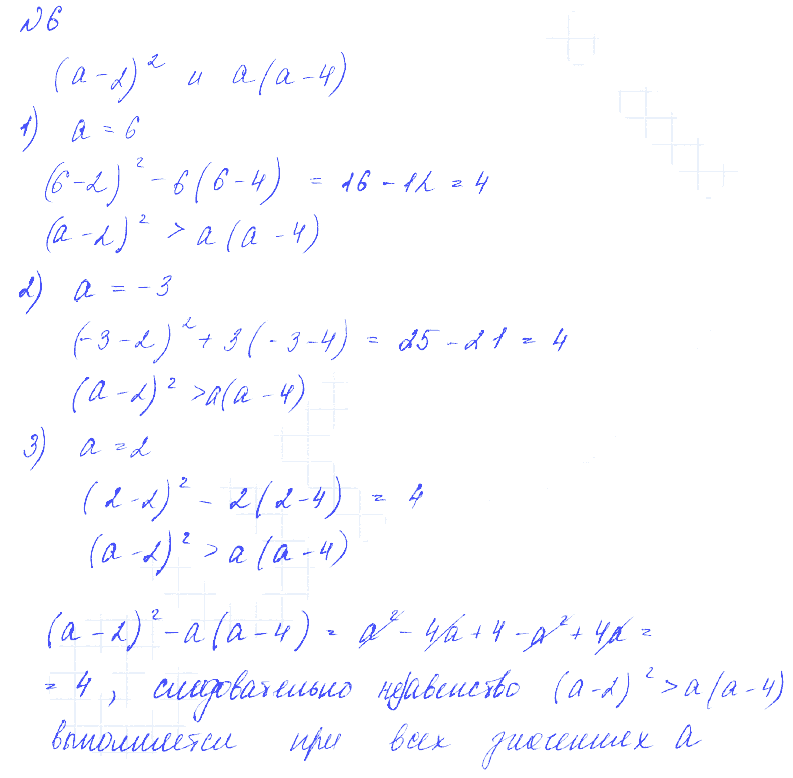 №6
(a-2)² и a(a-4)
1) a = 6
(6-2)² - 6(6-4) = 16 - 12 = 4
(a-2)² > a(a-4)
2) a = -3
(-3-2)² + 3(-3-4) = 25 - 21 = 4
(a-2)² > a(a-4)
3) a = 2
(2-2)² - 2(2-4) = 4
(a-2)² > a(a-4)
(a-2)² - a(a-4) = a² - 4a + 4 - a² + 4a =
= 4, следовательно неравенство (a-2)² > a(a-4)
выполняется при всех значениях a